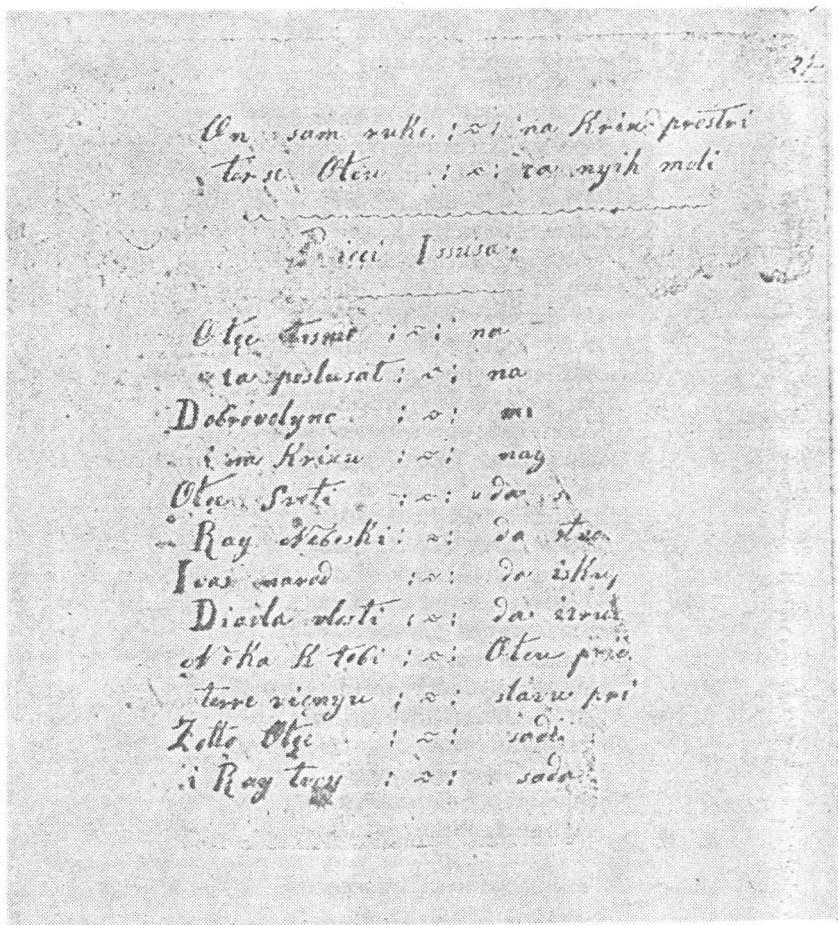 On sam ruke :~: na Krixu prostri
ter se Otcu :~: za nyih moli
Riçci Issusa.
Otçe :~: na
za poslusat :~: na
Dobrovolyno :~:
i na Krixu :~: nag
Otçe Sveti :~: da
Ray Nebeski :~: da
I vas narod :~: do isku
Diavla vlasti :~: da izru
Neka K tebi :~: Otcu
terre viçnyu :~: slavu pri
Zatto Otçe :~: sadi
i Ray tvoy :~: sada